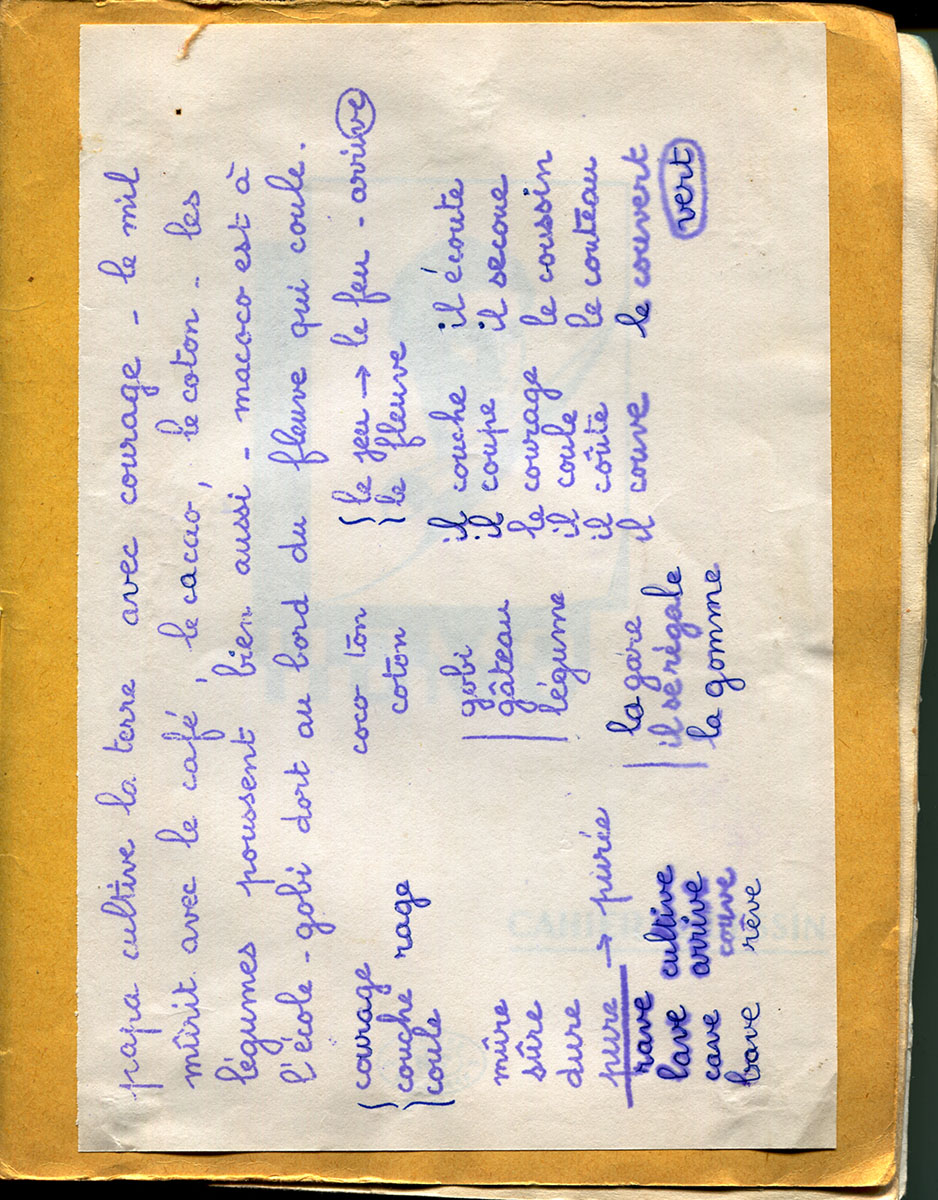 papa cultive la terre avec courage - le mil
mûrit avec le café, le cacao, le coton - les
légumes poussent bien aussi - macoco est à
l'école - gobi dort au bord du fleuve qui coule.
courage
couche rage
coule
coco ton
coton
le jeu → le feu - arrive
le fleuve
mûre
sûre
dure
pure → purée
gobi
gâteau
légume
il couche il écoute
il coupe il secoue
le courage le coussin
il coule
il coûte le couteau
il couve le couvert
vert
rave
lave cultive
cave arrive
couve
bave rêve
la gare
il se régale
la gomme